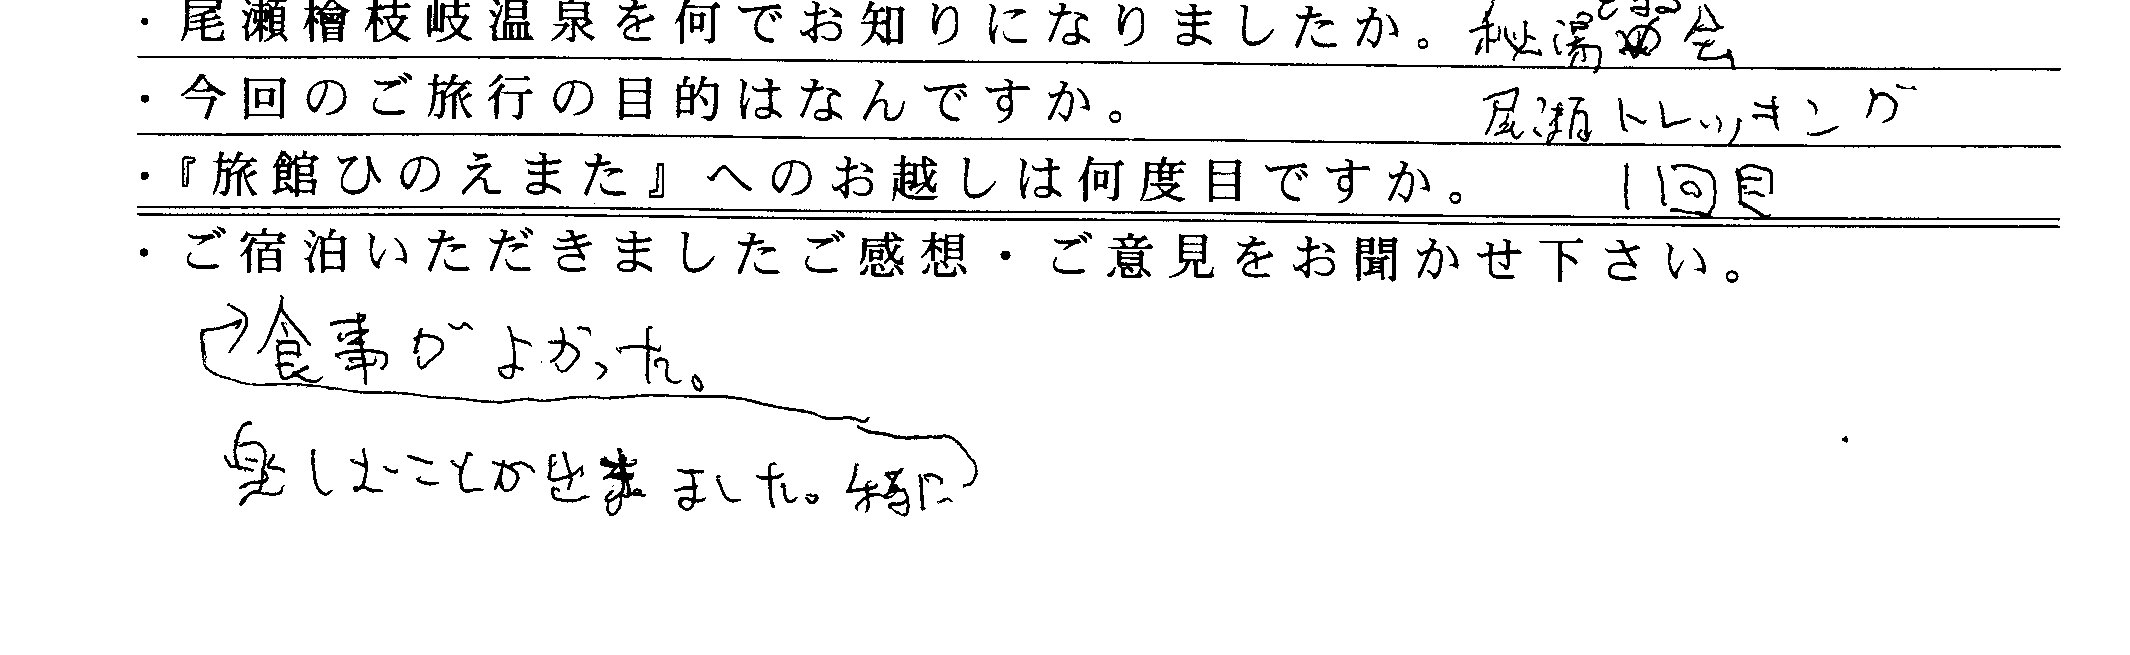 ・尾瀬檜枝岐温泉を何でお知りになりましたか。 秘湯 会
・今回のご旅行の目的はなんですか。 尾瀬トレッキング
・『旅館ひのえまた』へのお越しは何度目ですか。 1回目
・ご宿泊いただきましたご感想・ご意見をお聞かせ下さい。
食事がよかった。
楽しむことが出来ました。特に